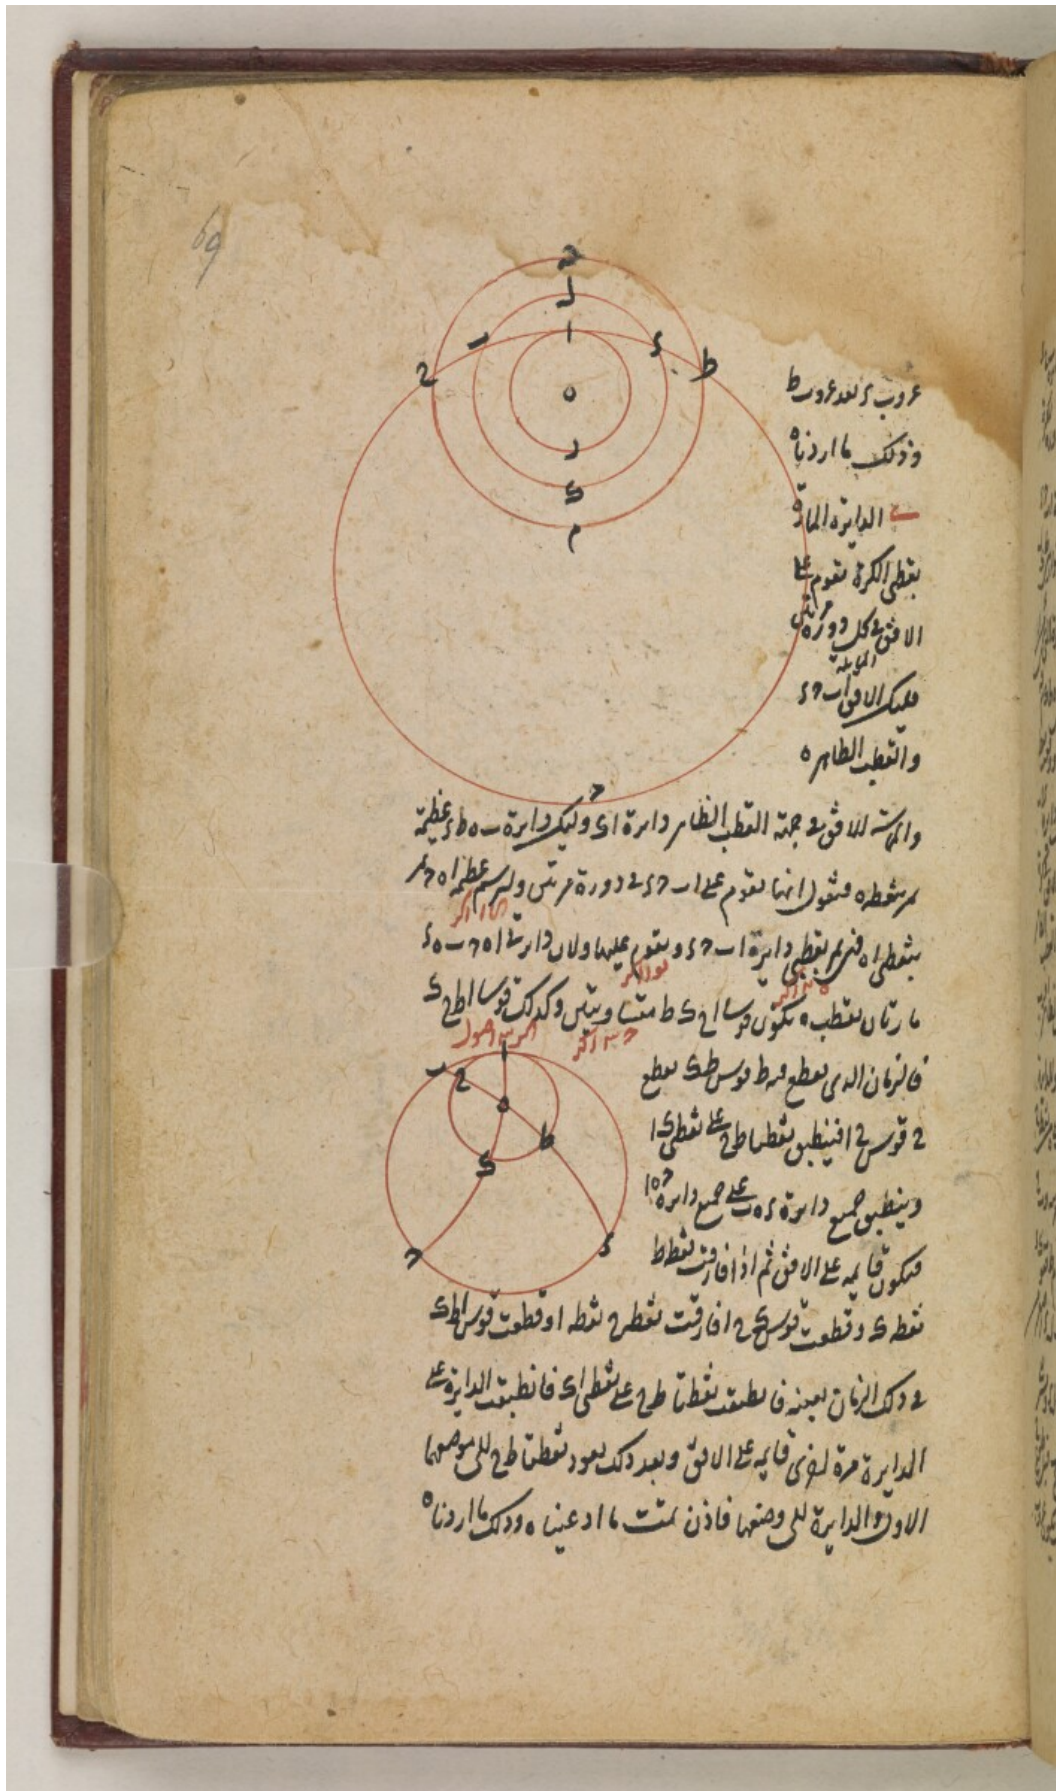 69
ح
ل
ا
ب
ء
ح
ط
ه
ر
ك
م
غروب ء بعد غروب ط
وذلك ما اردناه
الدايرة المارة
بقطبي الكرة تقوم على
الافق في كل دورة مرتين
المايلة
فليكن الافق اب حء
والقطب الظاهر ه
والمماسة للافق في جهة القطب الظاهر دايرة اك وليكن دايرة ب ه ط ء عظيمة
تمر بنقطة ه فنقول انها تقوم على اب حء في دورة مرتين ولنرسم عظيمة ا ه ح تمر
بنقطتي ا ه فهي تمر بقطبي دايرة اب حء وتقوم عليها ولان دايرتي ا ه ح ب ه ء
مارتان بقطب ه تكون قوسا اح ك ط متساويتين وكذلك قوسا اط ح ك
فالزمان الذي يقطع فيه ط قوس ط ك يقطع
ح قوس ح ا فينطبق نقطتا ط ح على نقطتي ك ا
وينطبق جميع دايرة ء ه ب على جميع دايرة ح ه ا
فيكون قايمة على الافق ثم اذا فارقت نقطة ط
نقطة ك وقطعت قوس ك ح ا فارقت نقطة ح نقطة ا وقطعت قوس اط ك
في ذلك الزمان بعينه فانطبقت نقطتا ط ح على نقطتي ا ك فانطبقت الدايرة على
الدايرة مرة اخرى قايمة على الافق وبعد ذلك يعود نقطتا ط ح الى موضعهما
الاول والدايرة الى وضعها فاذن ثبت ما ادعيناه وذلك ما اردناه
ا
ب
ح
ه
ط
ك
ح
ء